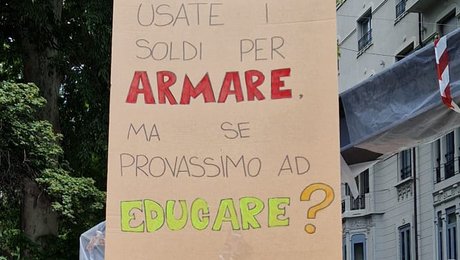 USATE I
SOLDI PER
ARMARE,
MA SE
PROVASSIMO AD
EDUCARE?